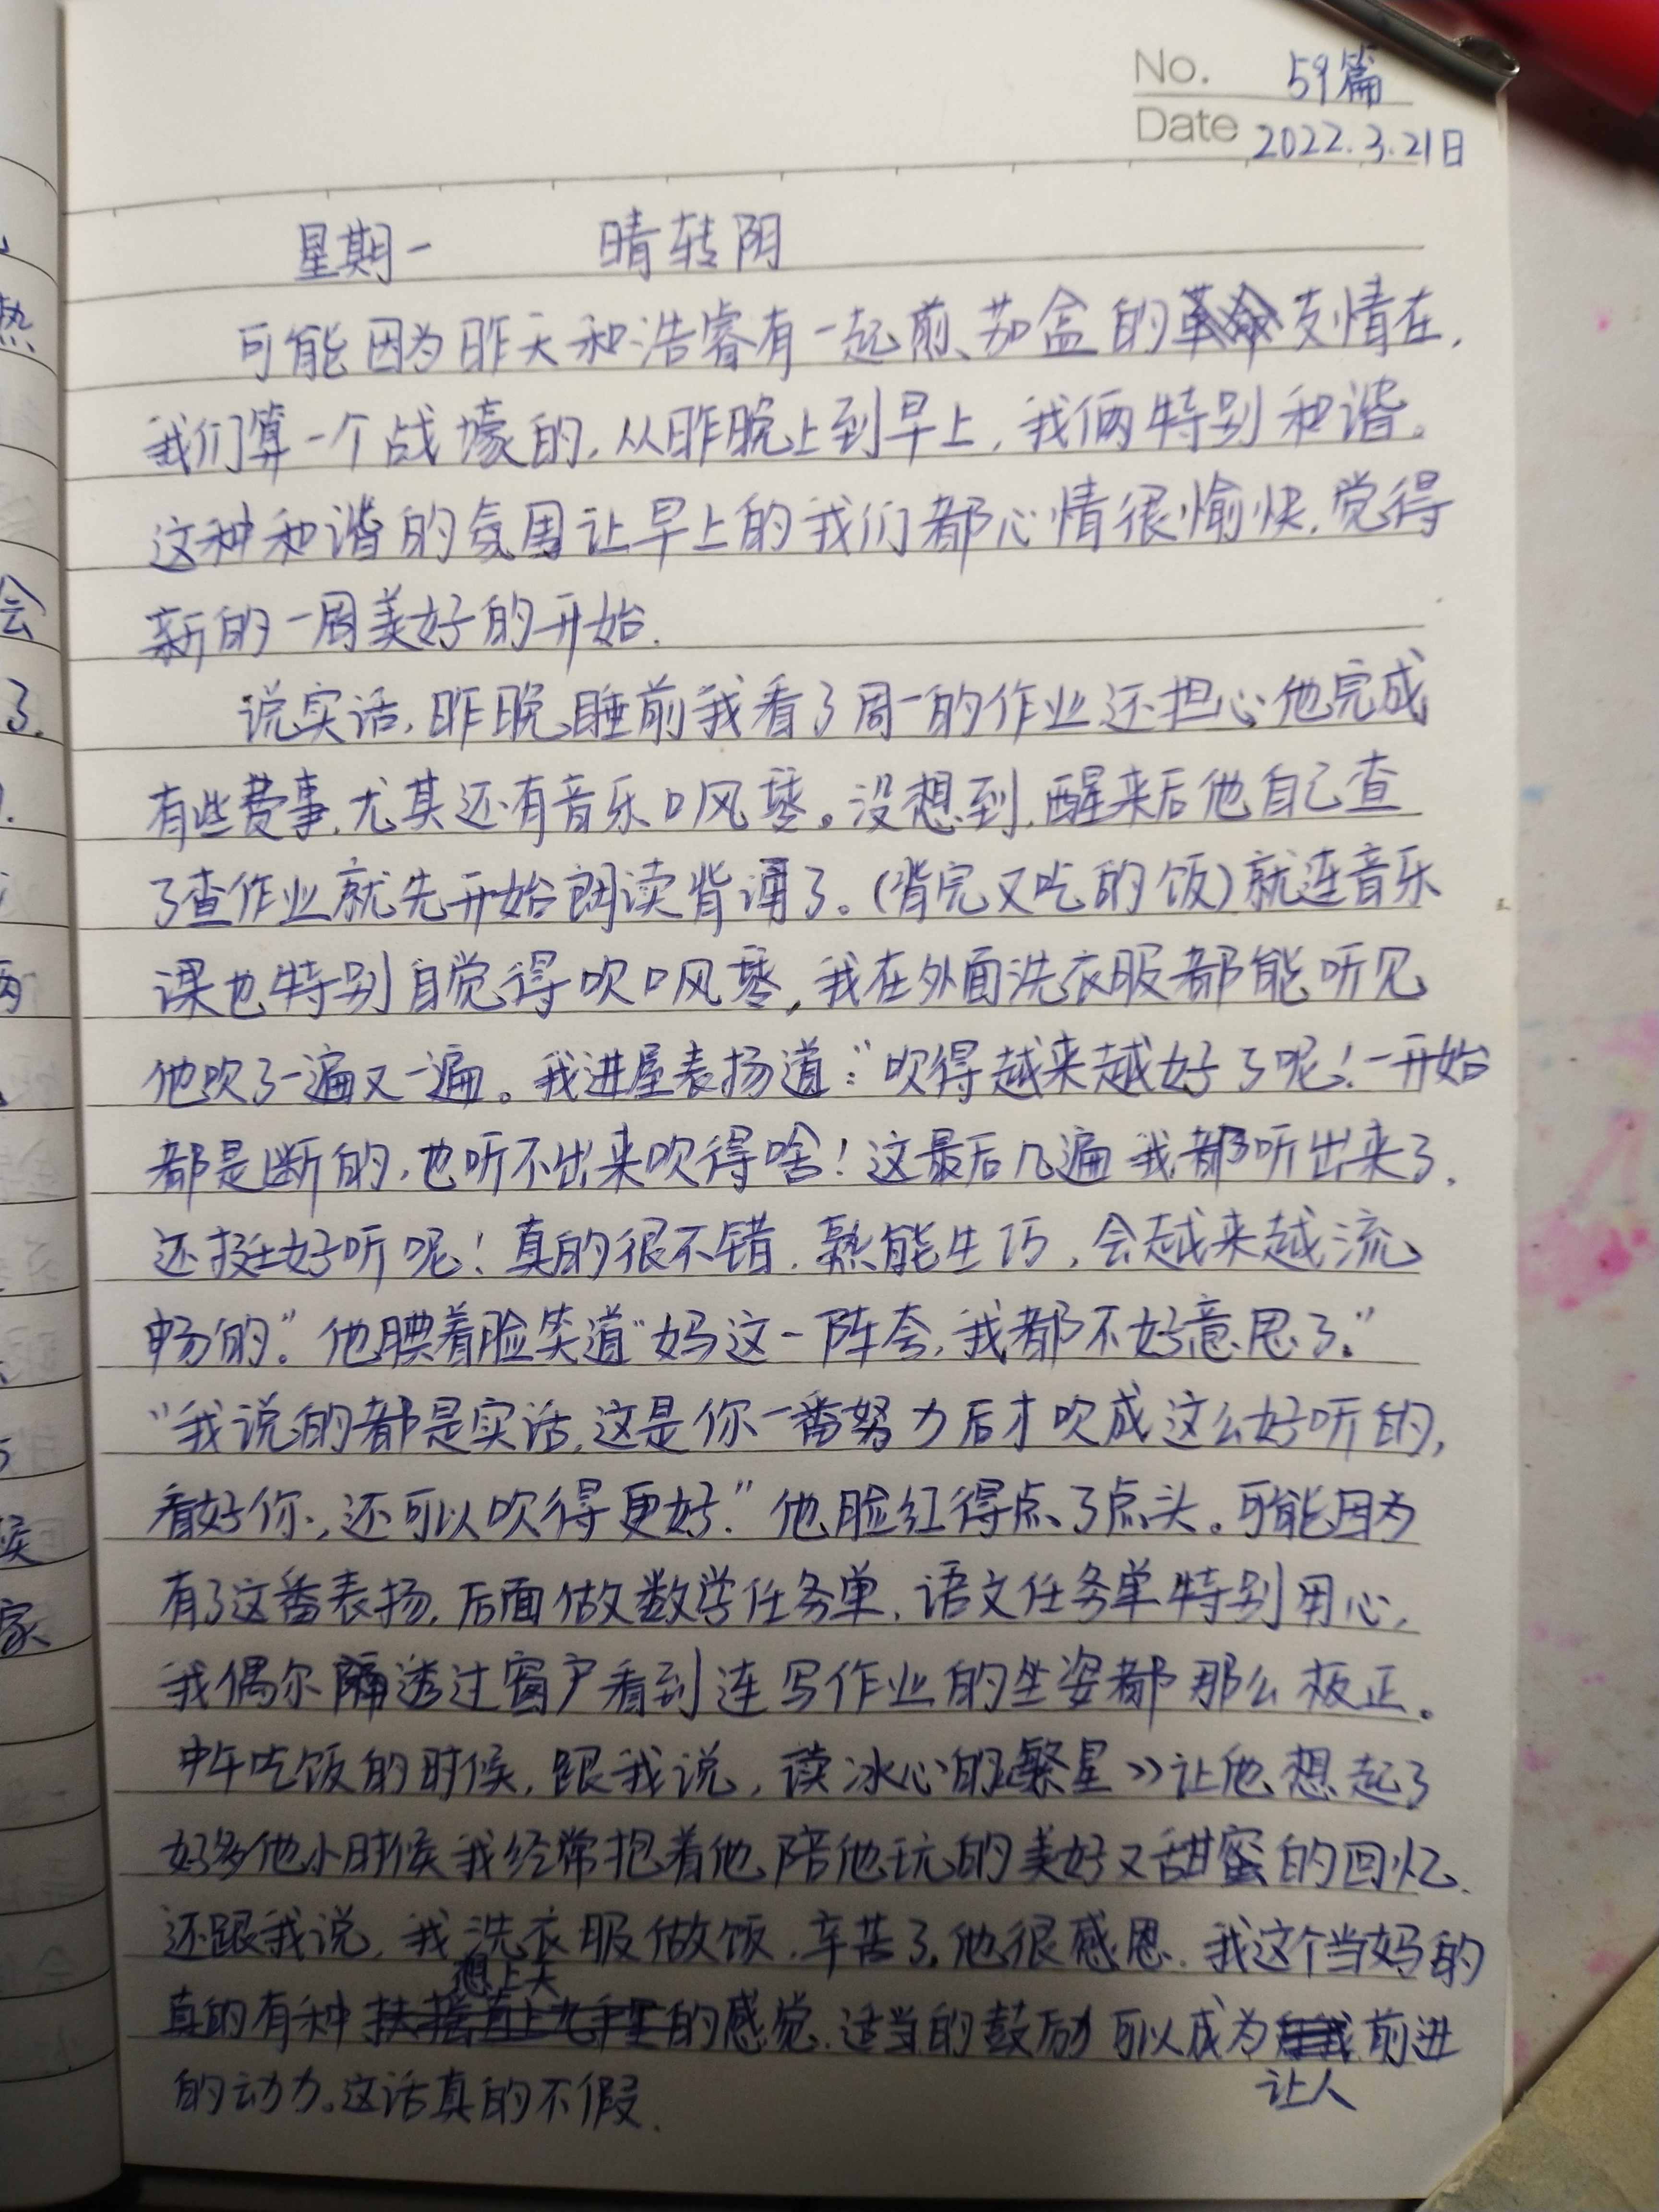 No. 59篇
Date 2022.3.21日
星期一 晴转阴
可能因为昨天和浩睿有一起煎茄盒的革命友情在,
我们算一个战壕的,从昨晚上到早上,我俩特别和谐。
这种和谐的氛围让早上的我们都心情很愉快,觉得
新的一周美好的开始.
说实话,昨晚睡前我看了周一的作业还担心他完成
有些费事,尤其还有音乐口风琴。没想到,醒来后他自己查
了查作业就先开始朗读背诵了。(背完又吃的饭)就连音乐
课也特别自觉得吹口风琴,我在外面洗衣服都能听见
他吹了一遍又一遍。我进屋表扬道:“吹得越来越好了呢!一开始
都是断的,也听不出来吹得啥!这最后几遍我都听出来了.
还挺好听呢!真的很不错,熟能生巧,会越来越流
畅的。”他腆着脸笑道“妈这一阵夸,我都不好意思了。”
“我说的都是实话,这是你一番努力后才吹成这么好听的,
看好你,还可以吹得更好.”他脸红得点了点头。可能因为
有了这番表扬,后面做数学任务单,语文任务单特别用心,
我偶尔透过窗户看到连写作业的坐姿都那么板正。
中午吃饭的时候,跟我说,读冰心的《繁星》让他想起了
好多他小时候我经常抱着他陪他玩的美好又甜蜜的回忆.
还跟我说,我洗衣服做饭,辛苦了,他很感恩.我这个当妈的
想上天
真的有种扶摇直上九千里的感觉.适当的鼓励可以成为前进
让人
的动力。这话真的不假.
热
会
了.
两
候
家